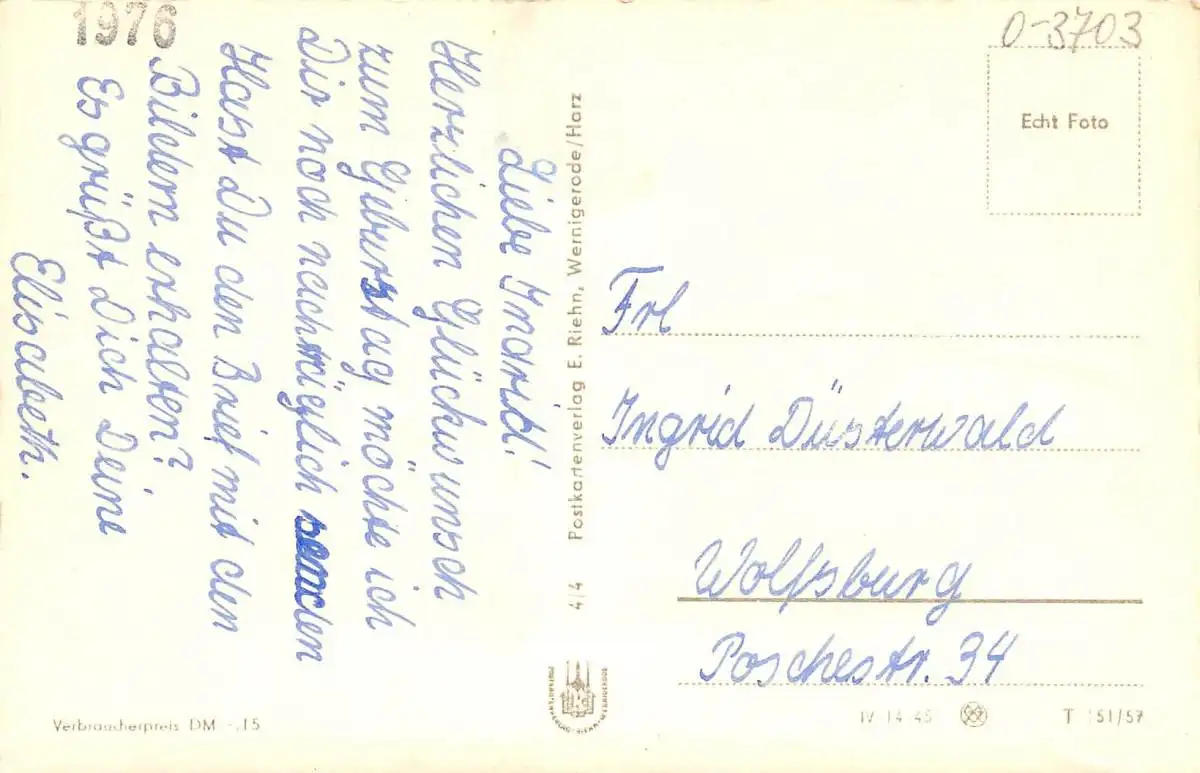 1976
Liebe Ingrid!
Herzlichen Glückwunsch
zum Geburstag möchte ich
Dir noch nachträglich senden
Hast Du den Brief mit den
Bildern erhalten?
Es grüßt Dich Deine
Elisabeth.
Verbraucherpreis DM -.15
Postkartenverlag E. Riehn, Wernigerode/Harz
4/4
0-3703
Echt Foto
Frl
Ingrid Düsterwald
Wolfsburg
Poschestr. 34
IV 14 45
T 151/57